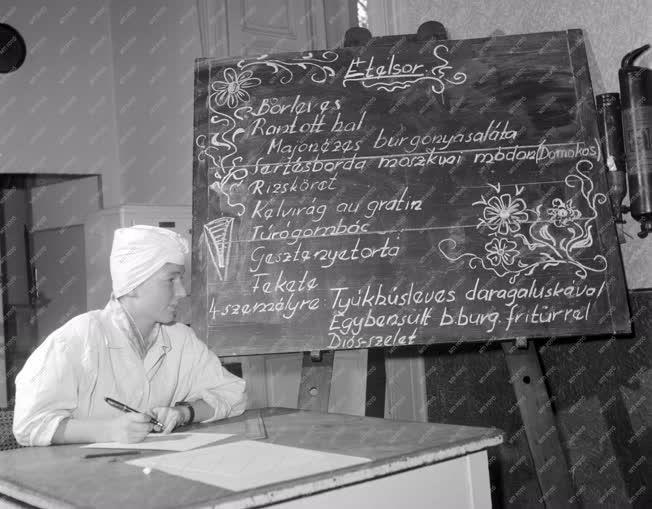 Ételsor.
Borleves
Rántott hal
Majonézes burgonyasaláta
Sertésborda moszkvai módon (Domokos)
Rizsköret
Kelvirág au gratin
Túrógombóc
Gesztenyetorta
Fekete
4 személyre: Tyúkhúsleves daragaluskával
Egybensült b.burg. fritürrel
Diós-szelet